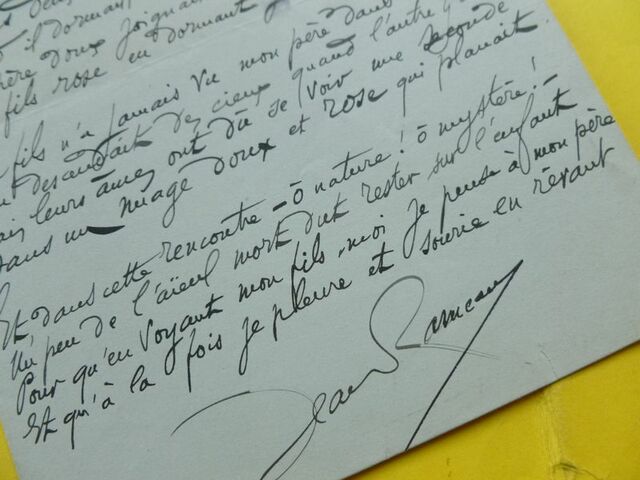 il dormait,
père doux joignai
fils rose en dormant
fils n'a jamais vu mon père dans
descendait des cieux quand l'autre y
leurs âmes ont dû se voir une seconde
dans un nuage doux et rose qui planait.
Et dans cette rencontre – ô nature! ô mystère! –
Un peu de l'aïeul mort dut rester sur l'enfant
Pour qu'en voyant mon fils, moi je pense à mon père
Et qu'à la fois je pleure et sourie en rêvant
Jean Rameau